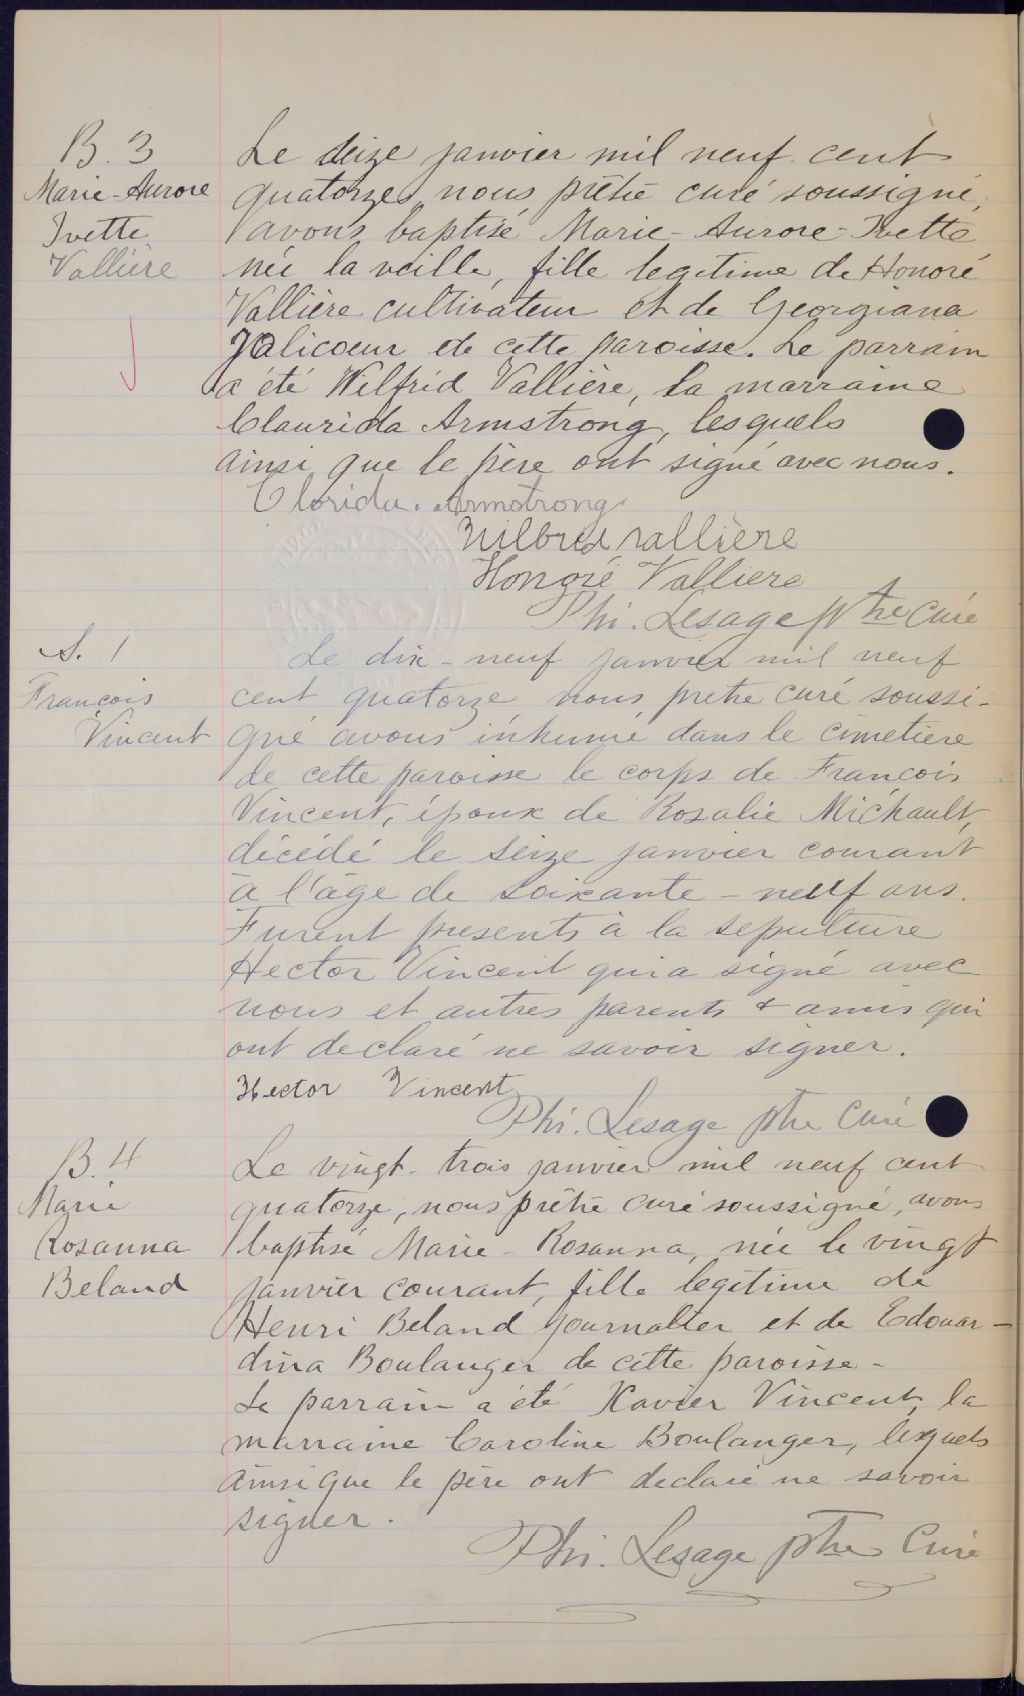 B. 3
Marie-Aurore
Ivette
Vallière
Le seize janvier mil neuf cent
quatorze, nous prêtre curé soussigné,
avons baptisé Marie-Aurore-Ivette
née la veille, fille legitime de Honoré
Vallière cultivateur et de Georgiana
Jolicoeur de cette paroisse. Le parrain
a été Wilfrid Vallière, la marraine
Claurida Armstrong, lesquels
ainsi que le père ont signé avec nous.
Clorida. Armstrong
Wilbred vallière
Honoré Valliere
Phi. Lesage ptre Curé
S. 1
François
Vincent
Le dix-neuf janvier mil neuf
cent quatorze nous pretre curé soussi-
gné avons inhumé dans le cimetiere
de cette paroisse le corps de Francois
Vincent, époux de Rosalie Michault,
décédé le seize janvier courant
à l'age de soixante-neuf ans.
Furent presents à la sepulture
Hector Vincent qui a signé avec
nous et autres parents & amis qui
ont declaré ne savoir signer.
Hector Vincent
Phi. Lesage ptre Curé
B. 4
Marie
Rosanna
Beland
Le vingt-trois janvier mil neuf cent
quatorze, nous prêtre curé soussigné, avons
baptisé Marie-Rosanna, née le vingt
janvier courant, fille legitime de
Henri Beland journalier et de Edouar-
dina Boulanger de cette paroisse-
Le parrain a été Xavier Vincent, la
marraine Caroline Boulanger, lesquels
ainsi que le père ont declaré ne savoir
signer.
Phi. Lesage ptre Curé